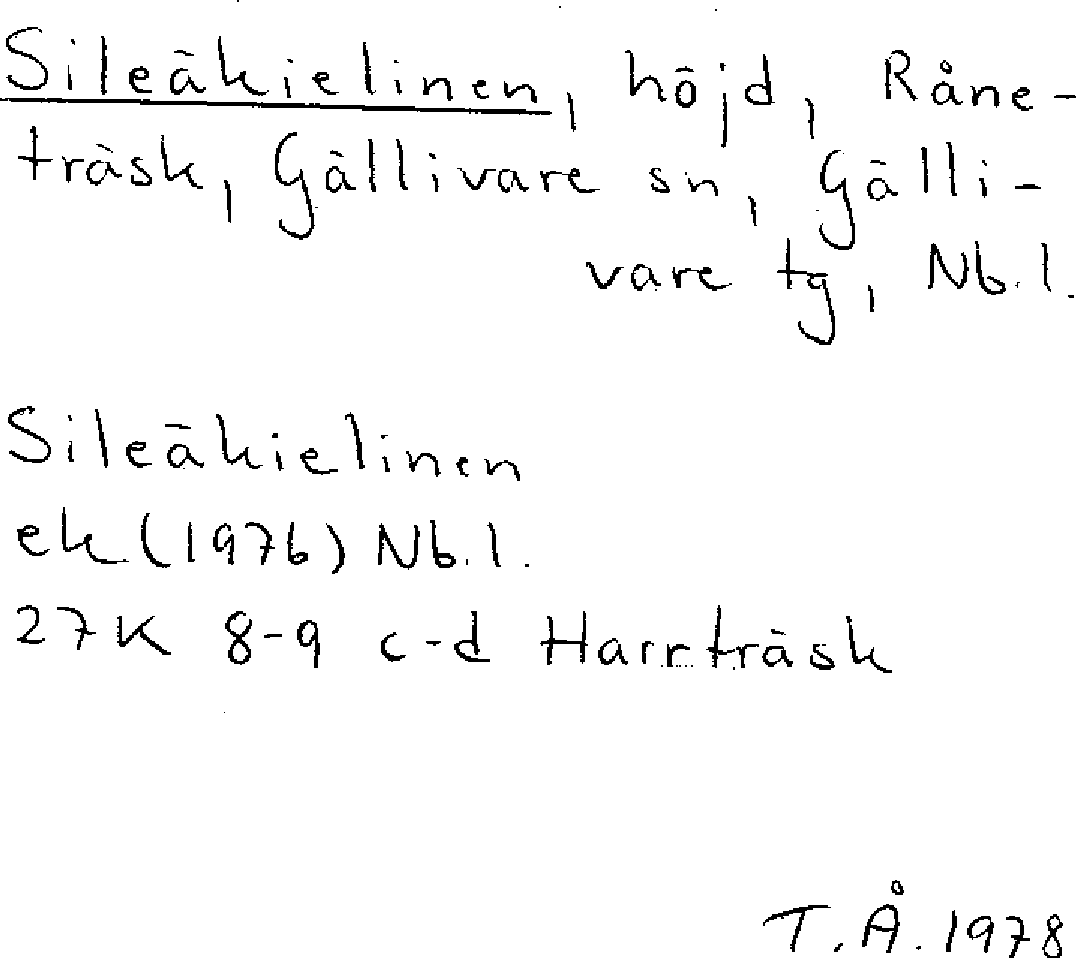 Sileäkielinen, höjd, Råne-
träsk, Gällivare sn, Gälli-
vare tg, Nb.l.
Sileäkielinen
ek (1976) Nb.l.
27K 8-9 c-d Harrträsk
T.Å. 1978